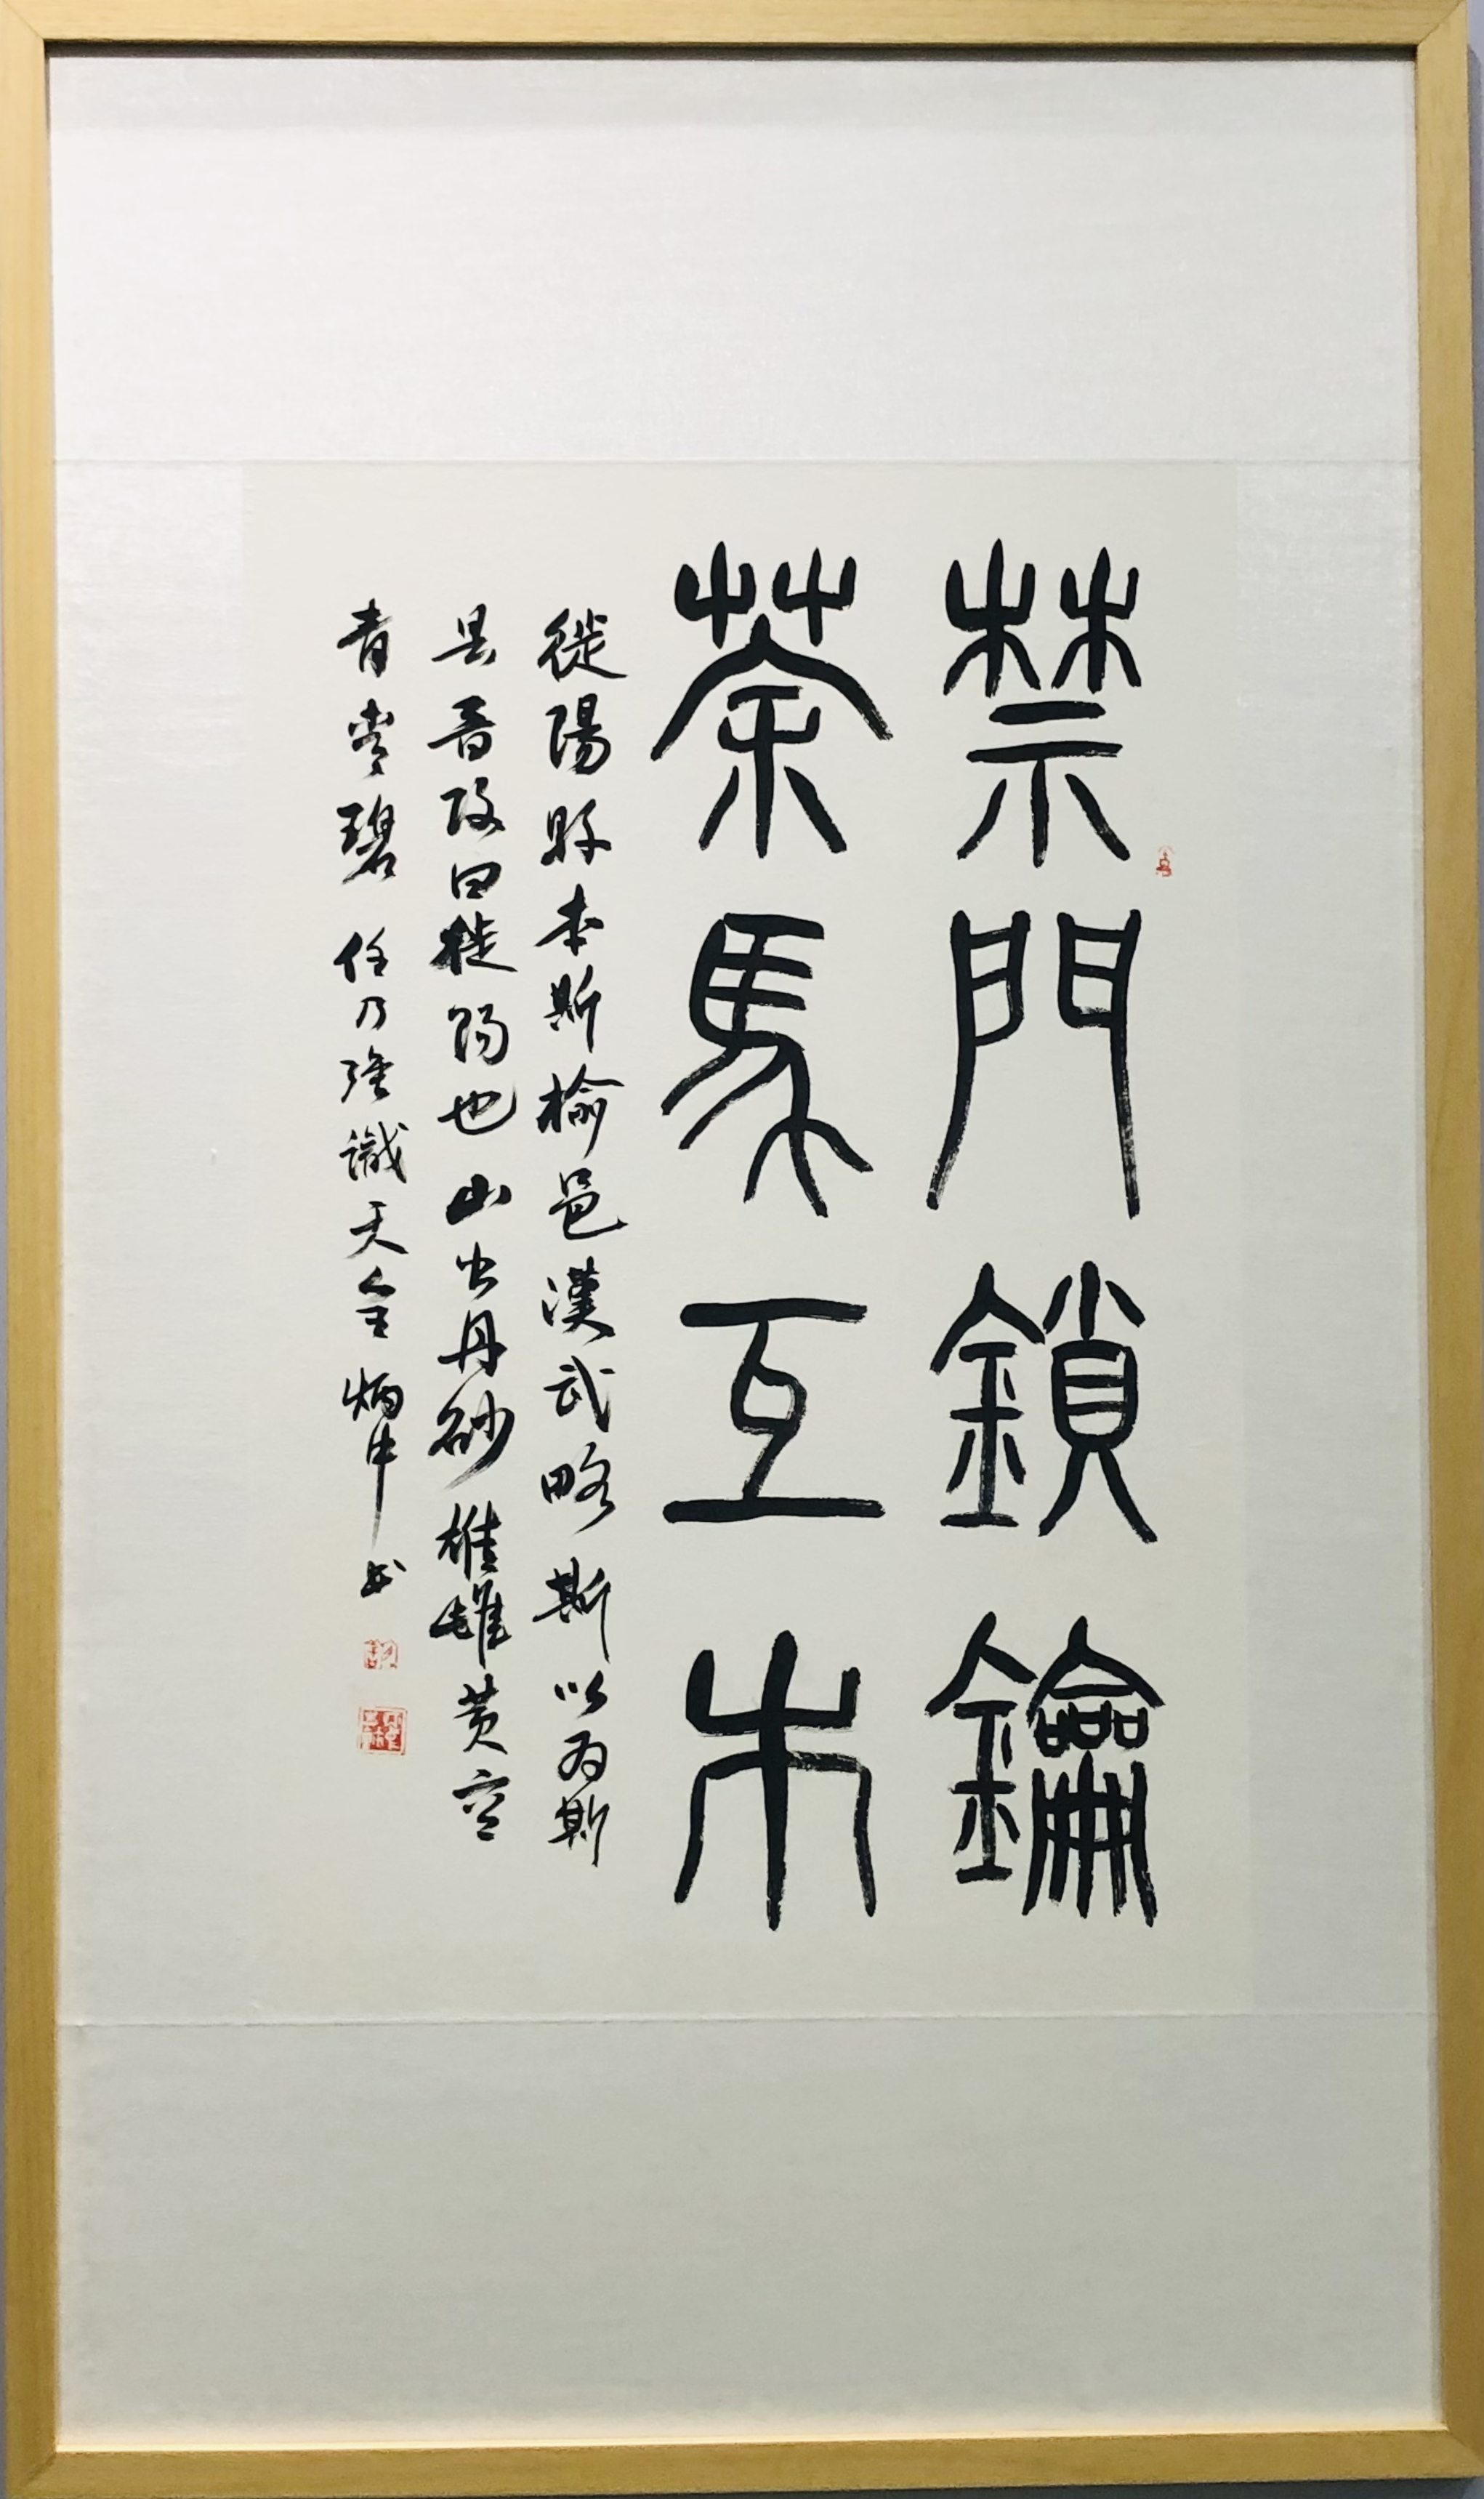 禁門鎖鑰
茶馬互市
徙陽縣本斯榆邑漢武略斯以為斯
縣晋改曰徙陽也山出丹砂雄雌黃空
青青碧任乃強識天全炳中书